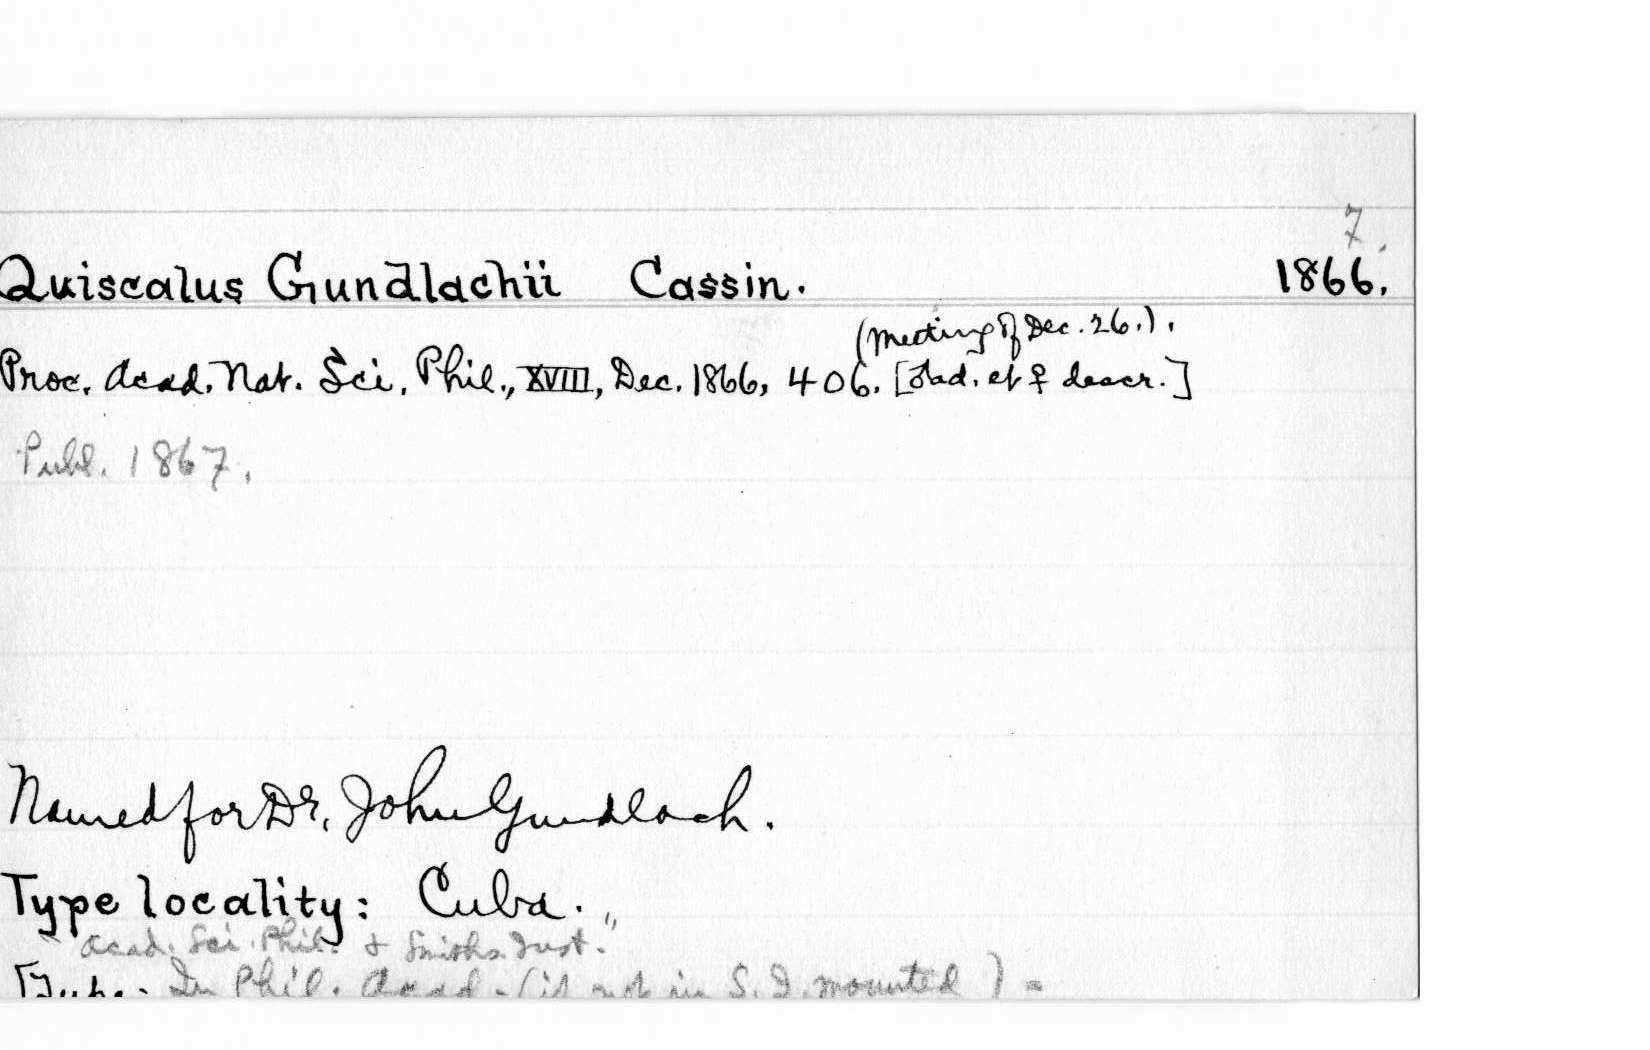 7.
Quiscalus Gundlachii Cassin. 1866.
(Meeting of Dec. 26.).
Proc. Acad. Nat. Sci. Phil., XVIII, Dec. 1866, 406. [♂ ad. et ♀ descr.]
Publ. 1867.
Named for Dr. John Gundlach.
Type locality: Cuba.
"Acad. Sci. Phil. & Smiths. Inst."
Type. In Phil. Acad. (is not in S. I. mounted) =